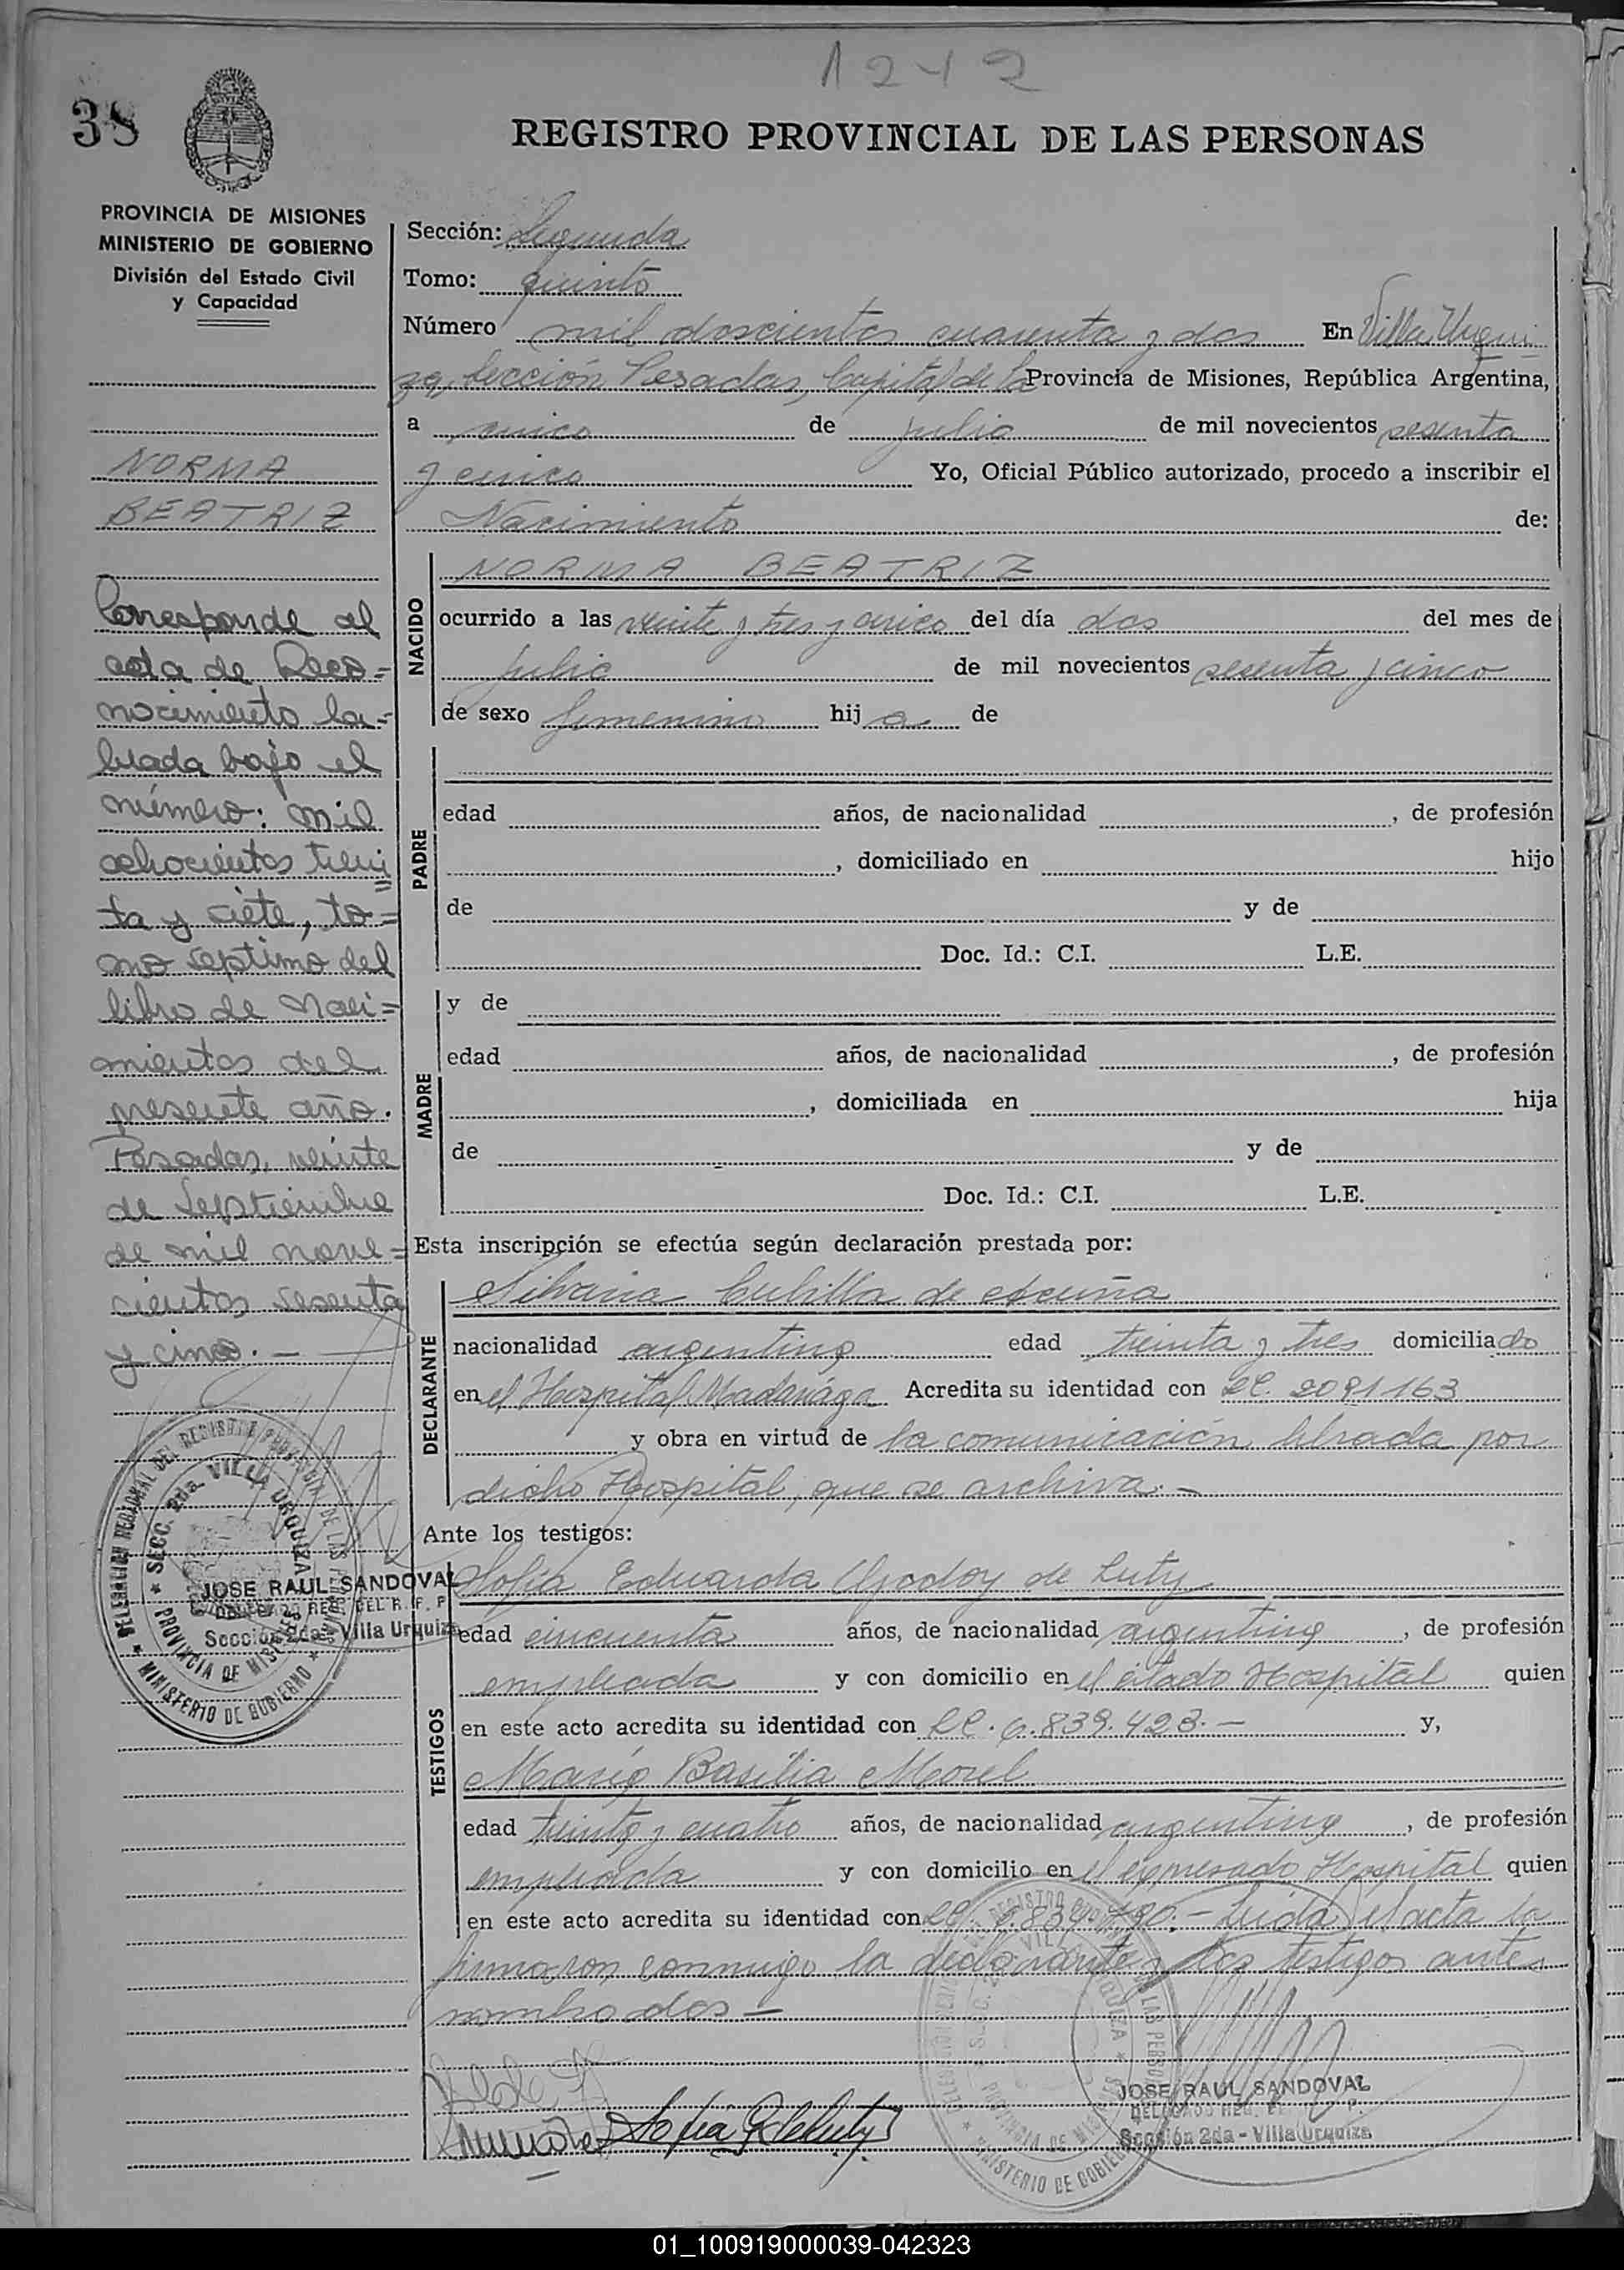 1242
38
REGISTRO PROVINCIAL DE LAS PERSONAS
PROVINCIA DE MISIONES
MINISTERIO DE GOBIERNO
División del Estado Civil
y Capacidad
NORMA
BEATRIZ
Corresponde al
acta de Reco=
nocimiento la=
brada bajo el
número: mil
ochocientos trein
ta y siete, to=
mo septimo del
libro de Naci=
mientos del
presente año.
Posadas, veinte
de Septiembre
de mil nove=
cientos sesenta
y cinco. —
DELEGACION REGIONAL DEL REGISTRO PROVINCIAL DE LAS PERSONAS
SECC. 2da. VILLA URQUIZA
PROVINCIA DE MISIONES
MINISTERIO DE GOBIERNO
JOSE RAUL SANDOVAL
DELEGADO REG. DEL R. P. P.
Sección 2da - Villa Urquiza
Sección: Segunda
Tomo: quinto
Número mil doscientos cuarenta y dos En Villa Urqui
za, Sección Posadas, Capital de la Provincia de Misiones, República Argentina,
a cinco de julio de mil novecientos sesenta
y cinco Yo, Oficial Público autorizado, procedo a inscribir el
Nacimiento de:
NACIDO
NORMA BEATRIZ
ocurrido a las veinte y tres y cinco del día dos del mes de
julio de mil novecientos sesenta y cinco
de sexo femenino hija de
PADRE
edad años, de nacionalidad , de profesión
, domiciliado en hijo
de y de
Doc. Id.: C.I. L.E.
MADRE
y de
edad años, de nacionalidad , de profesión
, domiciliada en hija
de y de
Doc. Id.: C.I. L.E.
Esta inscripción se efectúa según declaración prestada por:
DECLARANTE
Silvana Cubilla de Acuña
nacionalidad argentina edad treinta y tres domiciliado
en el Hospital Madariaga Acredita su identidad con LC. 2091163
y obra en virtud de la comunicación librada por
dicho Hospital, que se archiva. —
Ante los testigos:
TESTIGOS
Sofía Eduarda Godoy de Luty
edad cincuenta años, de nacionalidad argentina, de profesión
empleada y con domicilio en el citado Hospital quien
en este acto acredita su identidad con LC. 6.839.423. — y,
María Basilia Morel
edad treinta y cuatro años, de nacionalidad argentina, de profesión
empleada y con domicilio en el expresado Hospital quien
en este acto acredita su identidad con LC. — Leida el acta la
firmaron conmigo la declarante y los testigos antes
nombrados —
Sofia G de Luty
JOSE RAUL SANDOVAL
DELEGADO REG.
Sección 2da - Villa Urquiza
MINISTERIO DE GOBIERNO
01_100919000039-042323